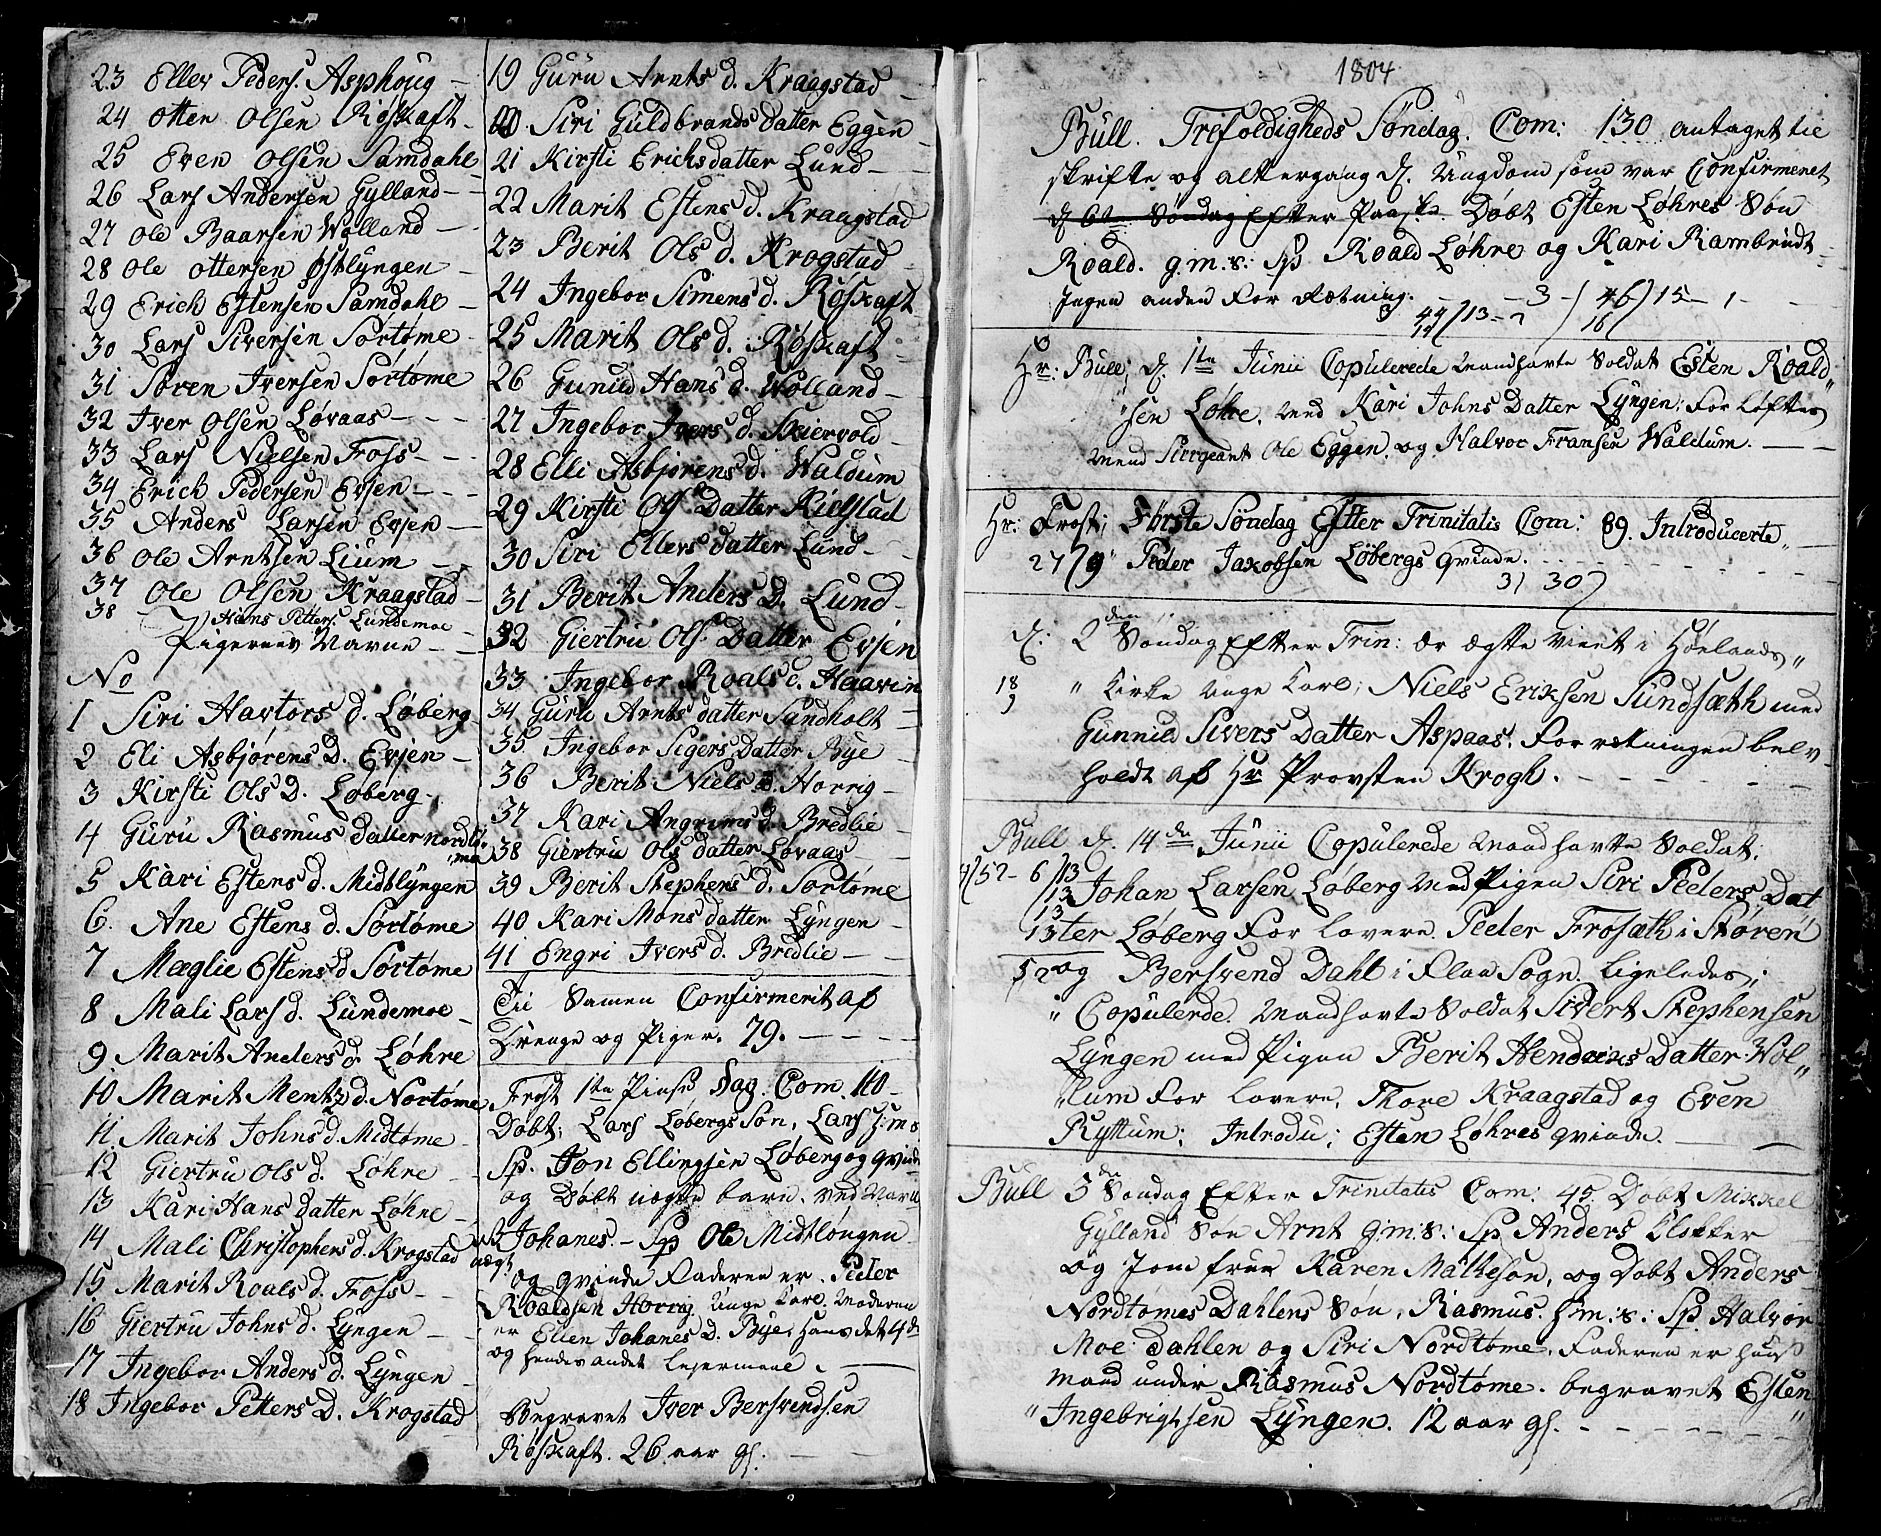 23 Eller Peders. Asphoug
24 Otten Olsen Røskaft
25 Even Olsen Samdahl
26 Lars Andersen Gylland
27 Ole Baarsen Wolland
28 Ole Ottersen Østlyngen
29 Erich Estensen Samdahl
30 Lars Siversen Sørtøme
31 Søren Iversen Sørtøme
32 Iver Olsen Løvaas
33 Lars Nielsen Foss
34 Erich Pedersen Evjen
35 Anders Larsen Evjen
36 Ole Arntsen Lium
37 Ole Olsen Kraagstad
38 Hans Petters. Lundemoe
Pigernes Navne
No
1 Siri Havtors d. Løberg
2 Eli Asbjørens D. Evjen
3 Kirsti Ols D. Løberg
4 Guru Rasmus datter Nordtø-
me
5 Kari Estens d. Midtlyngen
6. Ane Estens d. Sørtøme
7 Maglie Estens d Sørtøme
8 Mali Lars d. Lundemoe
9. Marit Anders d. Løhre
10 Marit Mentz d. Nortøme
11. Marit Johns d. Midtøme
12 Giertru Ols d. Løhre
13 Kari Hans datter Løhre
14 Mali Christophers d. Krogstad
15. Marit Roals d. Foss
16 Giertru Johns d. Lyngen
17 Ingebor Anders d. Lyngen
18 Ingebor Petters D. Krogstad
19 Guru Arnts d. Kraagstad
20. Siri Guldbrands datter Eggen
21 Kirsti Erichsdatter Lund
22 Marit Estens d. Kraagstad
23 Berit Ols d. Krogstad
24 Ingebor Simens d. Røskaft
25 Marit Ols d. Røskaft
26 Gunild Hans d. Wolland
27 Ingebor Ivers d. Skiervold
28 Elli Asbjorens d. Waldum
29 Kirsti Ols Datter Kielstad
30 Siri Ellers datter Lund
31 Berit Anders D. Lund
32 Giertru Ols Datter Evjen
33 Ingebor Roals d. Haavin
34 Guru Arnts datter Sandholt
35 Ingebor Sigers Datter Bye
36 Berit Niels D. Horrig
37 Kari Angrims d. Bredlie
38 Giertru Ols datter Løvaas
39 Berit Stephens d. Sørtøme
40 Kari Mons datter Lyngen
41 Engri Ivers d. Bredlie
Til Samen Confirmerit af
Drenge og Piger. 79.
Frost 1te Pinse Dag. Com. 110
Døbt; Lars Løbergs Søn, Lars H:m:s
Sp. Jon Ellingsen Løberg og qvinde
og Døbt uægte barn. ved Navn
Johanes. Sp Ole Midtløngen
og qvinde Faderen er. Peder
Roaldsen Horrig Unge Karl. Moderen
er Elen Johanes D. Bye. Hans det 4de
og hendes andet leiermaal
Begravet Iver Bersvendsen
Røskaft. 26 aar gl.
1804
Bull. Trefoldigheds Søndag. Com: 130 antaget til
skrifte og altergang d. Ungdom som var Confirmeret
d 6te Søndag Efter Paaske. Døbt Esten Løhres Søn
Roald. g.m.s: Sp Roald Løhre og Kari Rambrudt
Ingen anden For Rætning. 3 46 15 1
44 13 16
Hr: Bull; d. 1te Junii Copulerede Mandhavte Soldat Esten Roald
sen Løhre, Med Kari Johns Datter Lyngen; For løfters
mænd Sergeant Ole Eggen og Halvor Fransen Waldum.
Hr: Frost; Første Søndag Efter Trinitatis Com: 89. Introducerte
27/9 Peder Jakobsen Løbergs qvinde.
31 30
d: 2den Søndag Efter Trin: er ægte viet i Høelands
18 Kirke Unge Karl; Niels Eriksen Sundsæth med
Gunnild Sivers Datter Aspaas. Forretningen belv
holdt af Hr Provsten Krogh.
Bull d. 14de Junii Copulerede Mandhavte Soldat.
52 - 6/13
13 Johan Larsen Løberg Med Pigen Siri Peders Dat
13
13 ter Løberg For lovere. Peder Frosæth i Støren
52 og Bersvend Dahl i Flaa Sogn. ligeledes;
Copulerde Mandhavte Soldat Sivert Stephensen
Lyngen med Pigen Berit Hendriks Datter Wol
lum For lovere, Thore Kraagstad og Even
Ryttum; Introdu; Esten Løhres qvinde.
Bull 3de Søndag Efter Trinitatis Com: 45. Døbt Mikkel
Gyllands Søn Arnt g:m:s: Sp Anders Klokker
og Jomfrue Karen Matheson, og Døbt Anders
Nordtømes Dahlens Søn, Rasmus. H:m:s: Sp. Halvor
Moe Dahlen og Siri Nordtøme, Faderen er huus
mand under Rasmus Nordtøme. begravet Esten
Ingebrigtsen Lyngen. 12 aar gl.